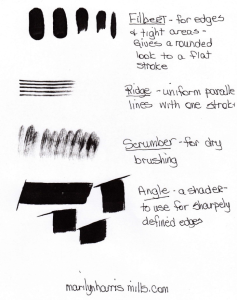 Filbert - for edges
& tight areas -
Gives a rounded
look to a flat
stroke
Ridge - uniform paralle
lines with one stroke
Scrumber - for dry
brushing
Angle - a shader -
to use for sharpely
defined edges
marilynharris mills.com